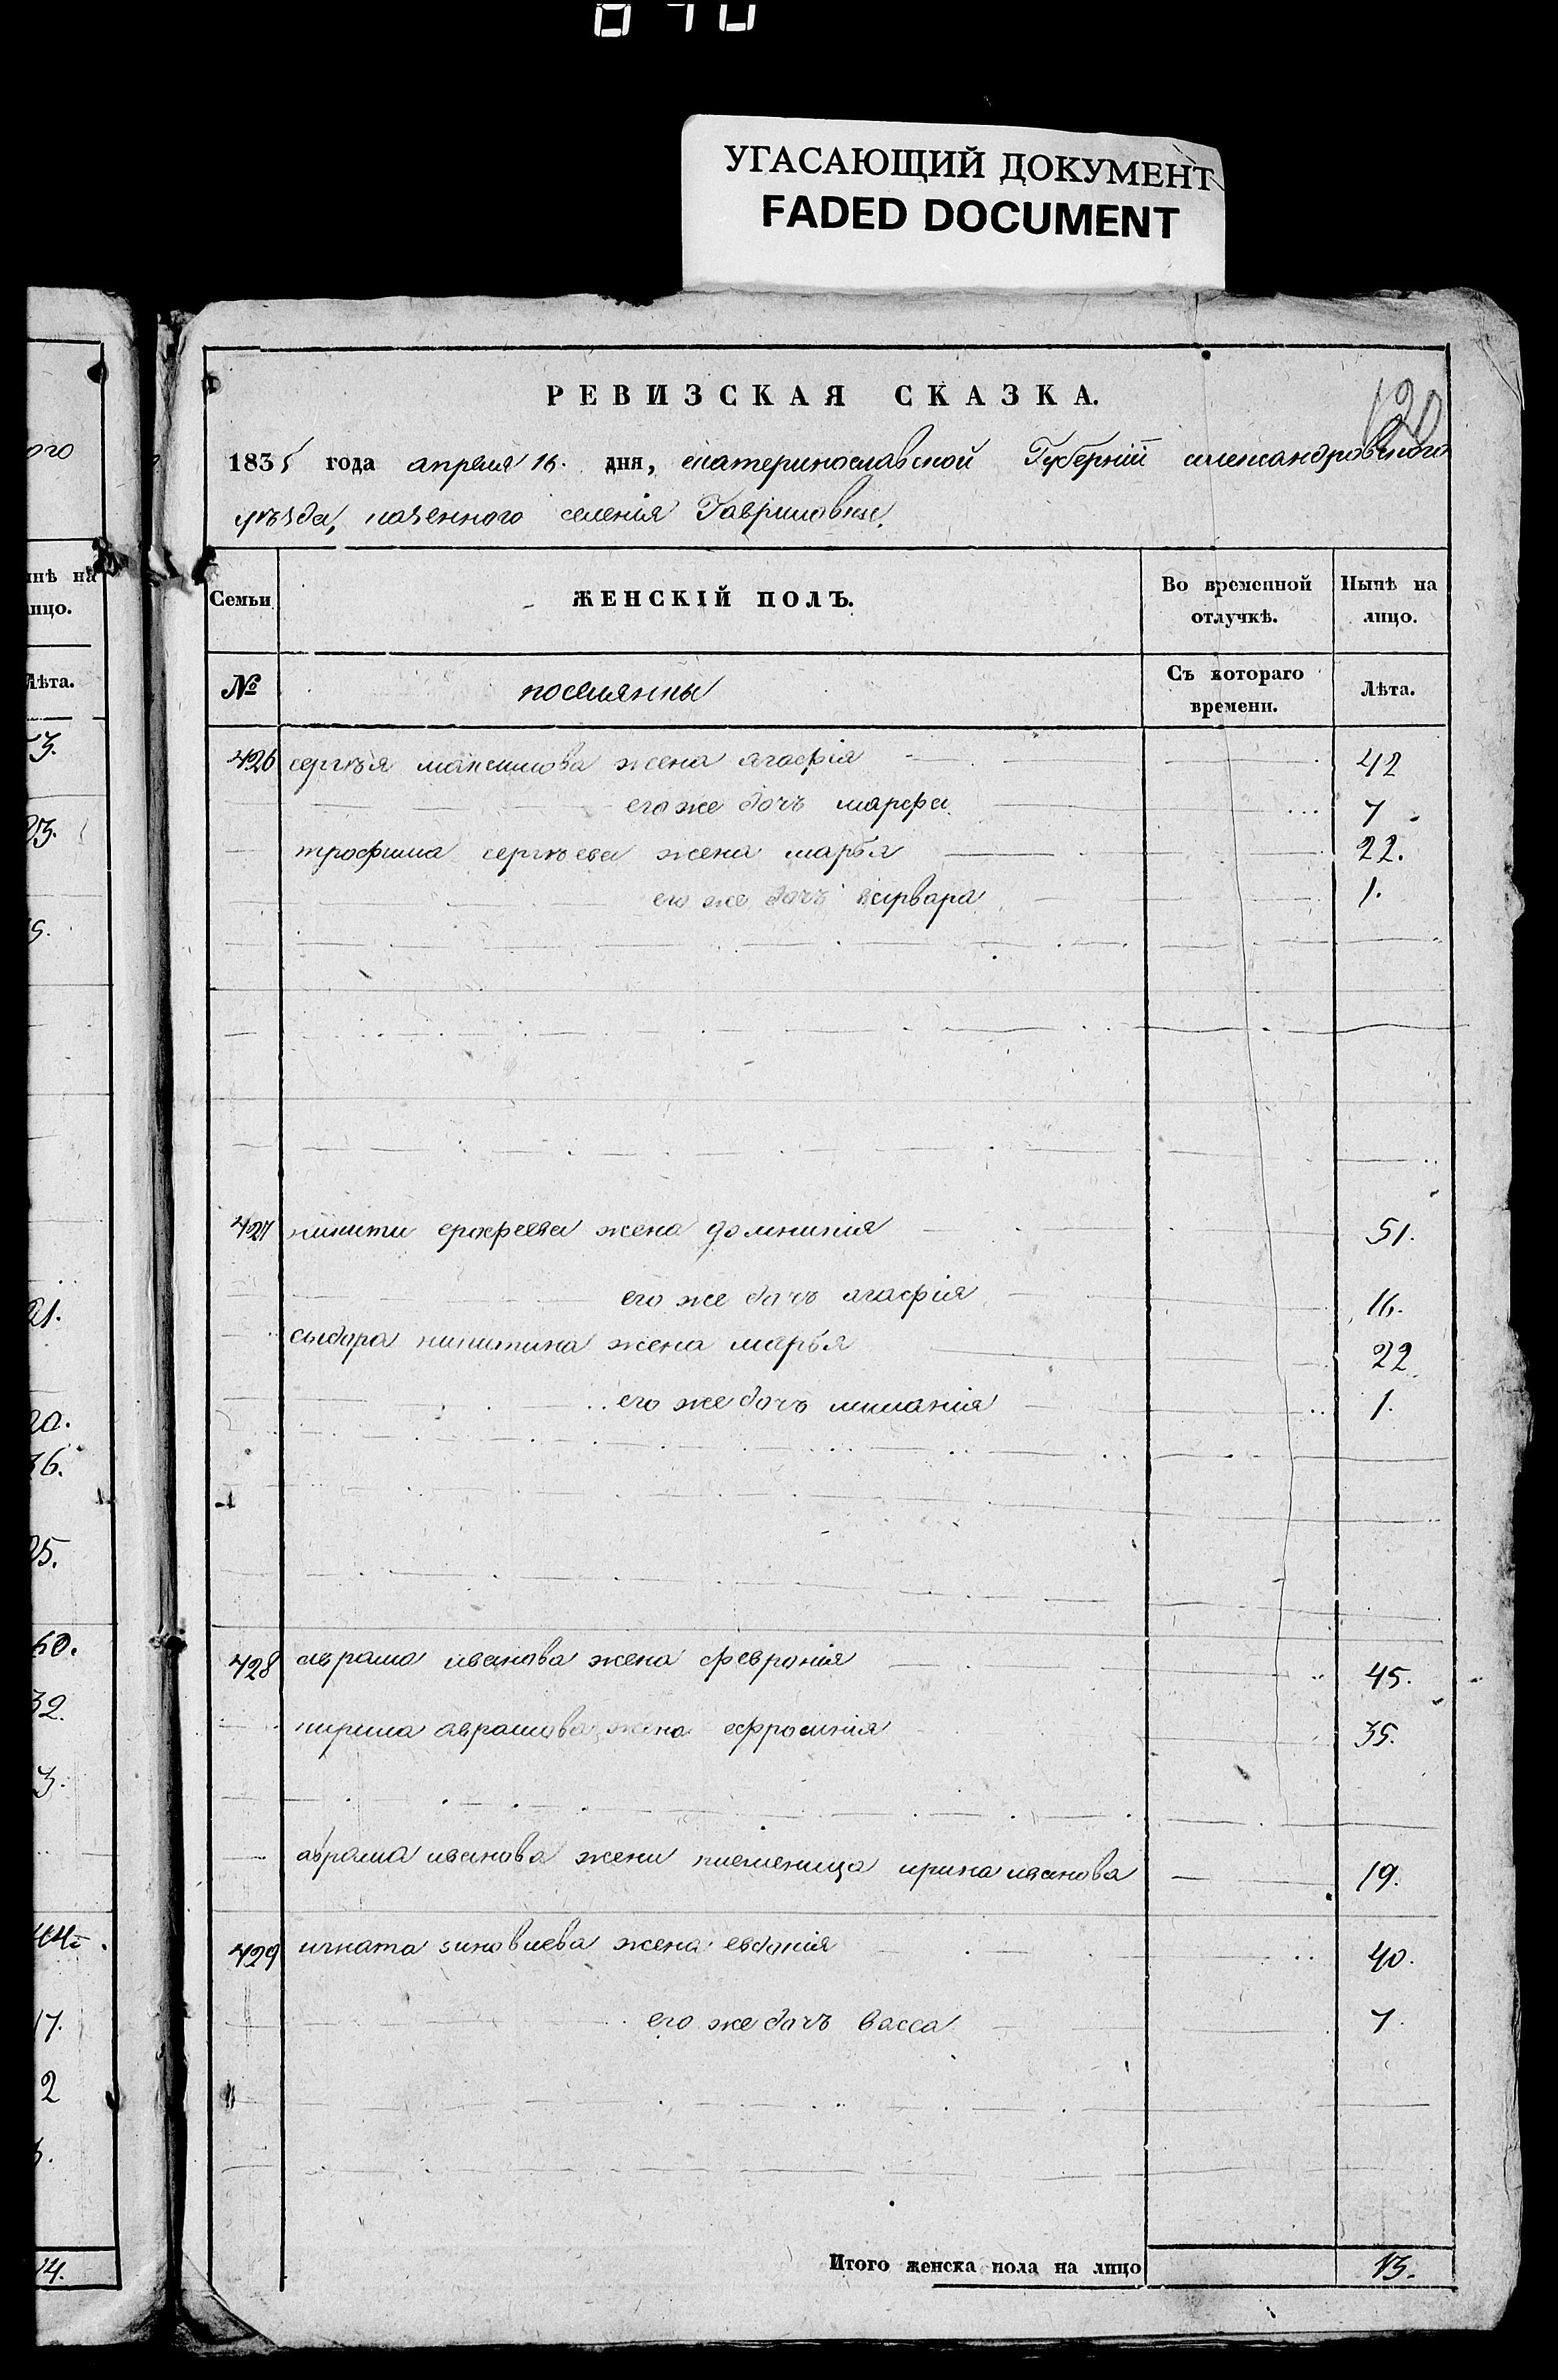 УГАСАЮЩИЙ ДОКУМЕНТ
FADED DOCUMENT
ого
РЕВИЗСКАЯ СКАЗКА.
120
1835 года апреля 16. дня, екатеринославской Губерніи александровского
уѣзда, казенного селенія Гавриловки.
нѣ на
ицо.
Лѣта.
Семьи
ЖЕНСКІЙ ПОЛЪ.
Во временной отлучкѣ.
Нынѣ на лицо.
№
поселянны
Съ котораго времени.
Лѣта.
426 сергѣя максимова жена агафія 42
его же дочъ марфа 7
трофима сергѣева жена марья 22.
его же дочъ варвара 1.
427 никити ерофеева жена домникія 51.
его же дочъ агафія 16.
сидора никитина жена марья 22
его же дочъ миланія 1.
428 аврама иванова жена февронія 45.
кирила аврамова жена ефросинія 35.
аврама иванова жени племеница ирина иванова 19.
429 игната зиновиева жена евдокія 40.
его же дочъ васса 7.
Итого женска пола на лицо 13.